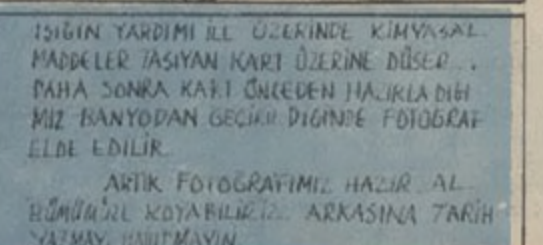 IŞIĞIN YARDIMI İLE ÜZERİNDE KİMYASAL
MADDELER TAŞIYAN KART ÜZERİNE DÜŞER...
DAHA SONRA KARTI ÖNCEDEN HAZIRLADIĞI
MIZ BANYODAN GEÇİRİLDİĞİNDE FOTOĞRAF
ELDE EDİLİR.
ARTIK FOTOĞRAFIMIZ HAZIR. AL
BÜMÜMÜZE KOYABİLİRİZ. ARKASINA TARİH
YAZMAYI UNUTMAYIN.